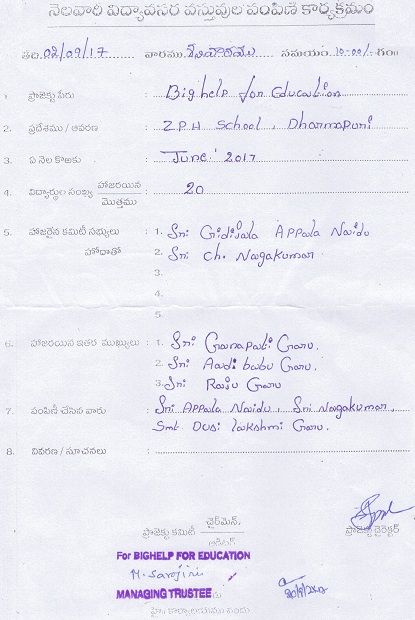 నెలవారీ విద్యావసర వస్తువుల పంపిణీ కార్యక్రమం
తేది: 02/09/17 వారము శనివారము సమయం. 10-00/- గం॥
1. ప్రాజెక్టు పేరు : Bighelp for Education
2. ప్రదేశము / ఆవరణ : Z.P.H School, Dharmapuri
3. ఏ నెల కొఱకు : June' 2017
4. విద్యార్థుల సంఖ్య హాజరయిన : 20
మొత్తము
5. హాజరైన కమిటీ సభ్యులు : 1. Sri Gidijala Appala Naidu
హోదాతో 2. Sri Ch. Nagakumar
3.
4.
5.
6. హాజరయిన ఇతర ముఖ్యులు : 1. Sri Ganapati Garu.
2. Sri Aadi babu Garu.
3. Sri Raju Garu
7. పంపిణీ చేసిన వారు : Sri Appala Naidu, Sri Nagakumar,
Smt Dusi lakshmi Garu.
8. వివరణ / సూచనలు :
ప్రాజెక్టు కమిటీ ఛైర్మెన్. ప్రాజెక్టు డైరెక్టర్
ఆడిటర్
For BIGHELP FOR EDUCATION
M. Sarojini
MANAGING TRUSTEE
హై. కార్యాలయము నందు